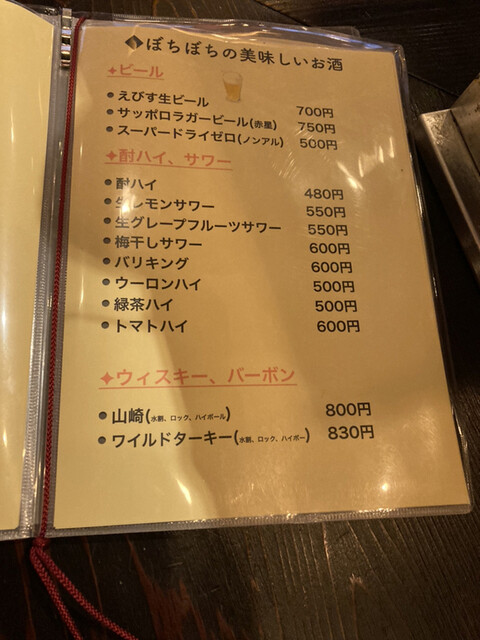 ぼちぼちの美味しいお酒
ビール
えびす生ビール 700円
サッポロラガービール(赤星) 750円
スーパードライゼロ(ノンアル) 500円
酎ハイ、サワー
酎ハイ 480円
生レモンサワー 550円
生グレープフルーツサワー 550円
梅干しサワー 600円
バリキング 600円
ウーロンハイ 500円
緑茶ハイ 500円
トマトハイ 600円
ウィスキー、バーボン
山崎(水割、ロック、ハイボール) 800円
ワイルドターキー(水割、ロック、ハイボー) 830円